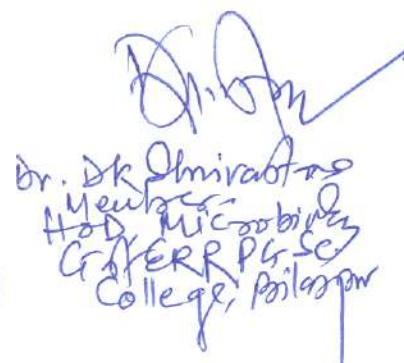 Dr. DK Shrivastava
Member
HoD, Microbiology
G.N.E.R.R.P.G. Sc
College, Bilaspur